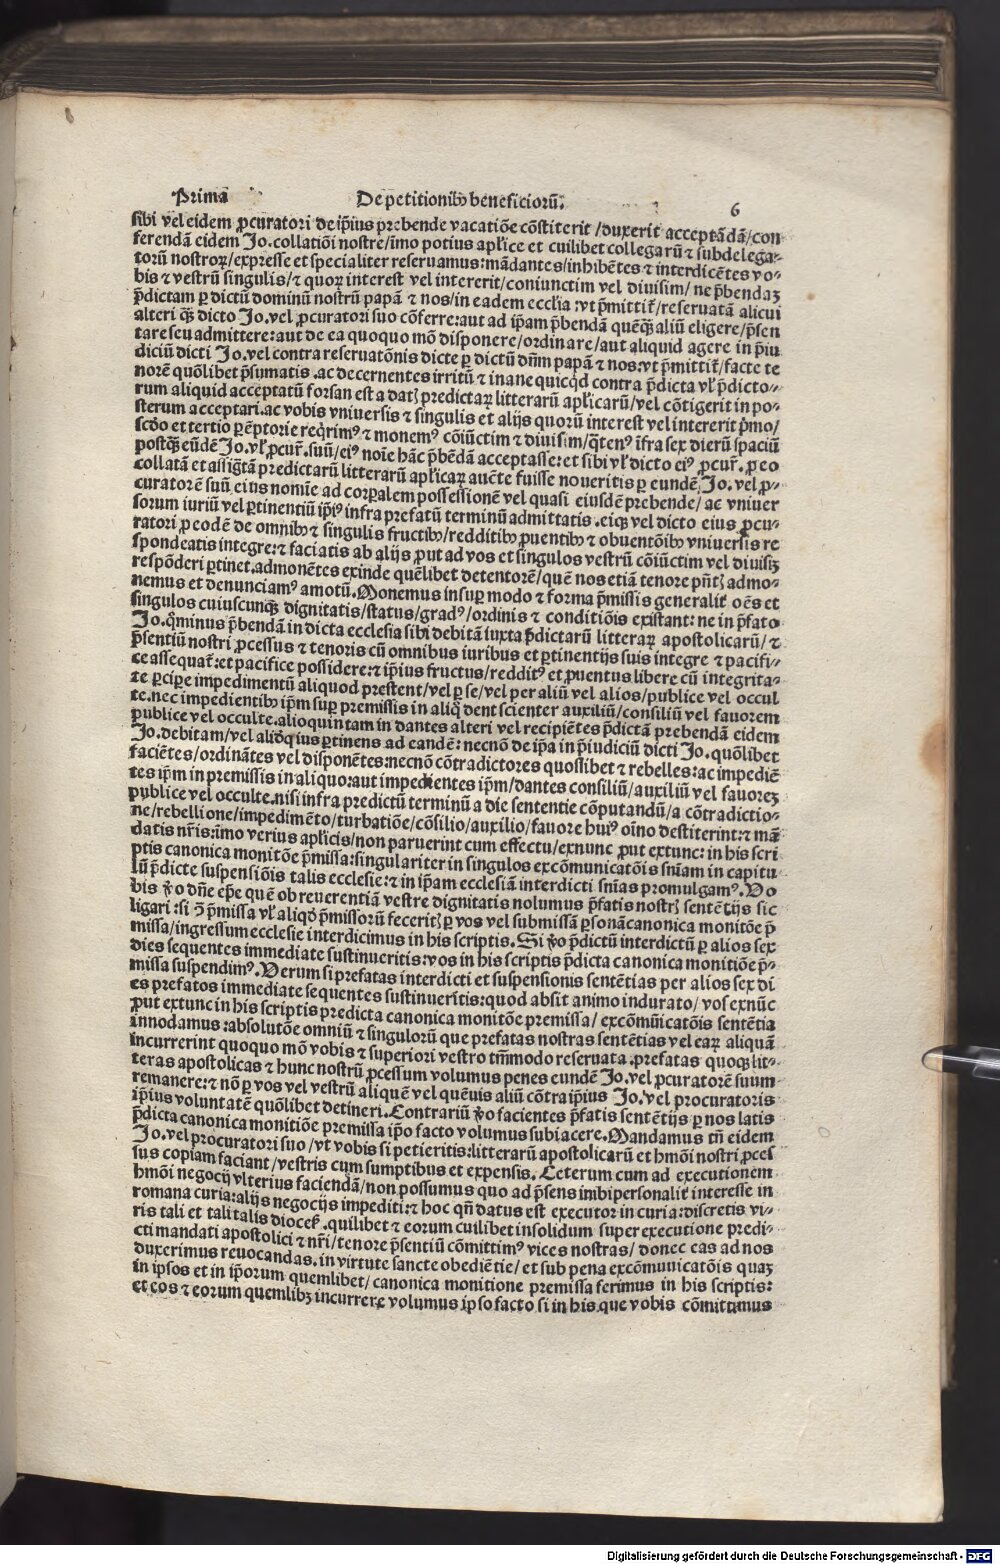 Prima De petitionibꝰ beneficiorū. 6
sibi vel eidem ꝓcuratori de ip̄ius prebende vacatiōe cōstiterit /duxerit acceptādā/con
ferendā eidem Jo. collatiōi nostre/imo potius apl̄ice et cuilibet collegarū ⁊ subdelega-
torū nostroꝝ/expresse et specialiter reseruamus: mādantes/inhibētes ⁊ interdicētes vo-
bis ⁊ vestrū singulis/⁊ quoꝝ interest vel intererit/coniunctim vel diuisim/ ne p̄bendaꝫ
p̄dictam ꝑ dictū dominū nostrū papā ⁊ nos/in eadem eccl̄ia: vt p̄mittit̄/reseruatā alicui
alteri qꝫ dicto Jo. vel ꝓcuratori suo cōferre: aut ad ip̄am p̄bendā quēqꝫ aliū eligere/p̄sen
tare seu admittere: aut de ea quoquo mō disponere/ordinare/aut aliquid agere in p̄iu
diciū dicti Jo. vel contra reseruatōnis dicte ꝑ dictū dn̄m papā ⁊ nos: vt p̄mittit̄/facte te
norē quōlibet p̄sumatis. ac decernentes irritū ⁊ inane quicqd contra p̄dicta vl̓ p̄dicto-
rum aliquid acceptatū forsan est a datꝫ predictaꝝ litterarū apl̄icarū/vel cōtigerit in po-
sterum acceptari. ac vobis vniuersis ⁊ singulis et alijs quorū interest vel intererit p̄mo/
scdo et tertio ꝑēptorie reqrimꝰ ⁊ monemꝰ cōiūctim ⁊ diuisim/qtenꝰ īfra sex dierū spaciū
postqꝫ eūdē Jo. vl̓ ꝓcur̄. suū/eiꝰ noīe hāc p̄bēdā acceptasse: et sibi vl̓ dicto eiꝰ ꝓcur̄. ꝓ eo
collatā et assigtā predictarū litterarū apl̄icaꝝ auēte fuisse noueritis ꝑ eundē Jo. vel ꝓ-
curatorē suū eius nomīe ad corꝑalem possessionē vel quasi eiusdē prebende/ ac vniuer
sorum iuriū vel ꝑtinentiū ip̄iꝰ infra prefatū terminū admittatis. eiqꝫ vel dicto eius ꝓcu-
ratori ꝓ eodē de omnibꝰ ⁊ singulis fructibꝰ/redditibꝰ ꝓuentibꝰ ⁊ obuentōibꝰ vniuersis re
spondeatis integre: ⁊ faciatis ab alijs ꝓut ad vos et singulos vestrū cōiūctim vel diuisiꝫ
respōderi ꝑtinet. admonētes exinde quēlibet detentorē/quē nos etiā tenore pn̄tꝫ admo-
nemus et denunciamꝰ amotū. Monemus insuꝑ modo ⁊ forma p̄missis generalit̄ oēs et
singulos cuiuscunqꝫ dignitatis/status/gradꝰ/ordinis ⁊ conditiōis existant: ne in p̄fato
Jo. qminus p̄bendā in dicta ecclesia sibi debitā iuxta p̄dictarū litteraꝝ apostolicarū/⁊
p̄sentiū nostri ꝓcessus ⁊ tenoris cū omnibus iuribus et ꝑtinentijs suis integre ⁊ pacifi-
ce assequat̄: et pacifice possidere: ⁊ ip̄ius fructus/redditꝰ et ꝓuentus libere cū integrita-
te ꝑcipere impedimentū aliquod prestent/vel ꝑ se/vel per aliū vel alios/publice vel occul
te. nec impedientibꝰ ip̄m suꝑ premissis in aliq̄ dent scienter auxiliū/consiliū vel fauorem
publice vel occulte. alioquin tam in dantes alteri vel recipiētes p̄dictā prebendā eidem
Jo. debitam/vel aliqd ius ꝑtinens ad eandē: necnō de ip̄a in p̄iudiciū dicti Jo. quōlibet
faciētes/ordināntes vel disponētes: necnō cōtradictores quoslibet ⁊ rebelles: ac impediē
tes ip̄m in premissis in aliquo: aut impedientes ip̄m/dantes consiliū/auxiliū vel fauoreꝫ
publice vel occulte. nisi infra predictū terminū a die sententie cōputandū/a cōtradictio-
ne/rebellione/impedimēto/turbatiōe/cōsilio/auxilio/fauore huiꝰ oīno destiterint: ⁊ mā
datis nr̄is: imo verius apl̄icis/non paruerint cum effectu/exnunc ꝓut extunc: in his scri
ptis canonica monitōe p̄missa: singulariter in singulos excōmunicatōis sniam in capitu
lū p̄dicte suspensiōis talis ecclesie: ⁊ in ip̄am ecclesiā interdicti snīas promulgamꝰ. Vo
bis v̄o dn̄e ep̄e quē ob reuerentiā vestre dignitatis nolumus p̄fatis nostrꝫ sentētijs sic
ligari: si ↄ̄ p̄missa vl̓ aliqd p̄missorū feceritꝫ ꝑ vos vel submissā ꝑsonā canonica monitōe p̄
missa/ingressum ecclesie interdicimus in his scriptis. Si v̄o p̄dictū interdictū ꝑ alios sex
dies sequentes immediate sustinueritis: vos in his scriptis p̄dicta canonica monitiōe p̄-
missa suspendimꝰ. Verum si prefatas interdicti et suspensionis sentētias per alios sex di
es prefatos immediate sequentes sustinueritis: quod absit animo indurato/ vos exnūc
ꝓut extunc in his scriptis predicta canonica monitōe premissa/ excōmūicatōis sentētia
innodamus: absolutōe omniū ⁊ singulorū que prefatas nostras sentētias vel eaꝝ aliquā
incurrerint quoquo mō vobis ⁊ superiori vestro tm̄modo reseruata. prefatas quoqꝫ lit-
teras apostolicas ⁊ hunc nostrū ꝓcessum volumus penes eundē Jo. vel ꝓcuratorē suum
remanere: ⁊ nō ꝑ vos vel vestrū aliquē vel quēuis aliū cōtra ip̄ius Jo. vel procuratoris
ip̄ius voluntatē quōlibet detineri. Contrariū v̄o facientes p̄fatis sentētijs ꝑ nos latis
p̄dicta canonica monitiōe premissa ip̄o facto volumus subiacere. Mandamus tn̄ eidem
Jo. vel procuratori suo/vt vobis si petieritis: litterarū apostolicarū et hmōi nostri ꝓces
sus copiam faciant/vestris cum sumptibus et expensis. Ceterum cum ad executionem
hmōi negocij vlterius faciendā/non possumus quo ad p̄sens inibi personalit̄ interesse in
romana curia: alijs negocijs impediti: ⁊ hoc qn̄ datus est executor in curia: discretis vi-
ris tali et tali talis dioceẜ. quilibet ⁊ eorum cuilibet insolidum super executione predi-
cti mandati apostolici ⁊ nr̄i/tenore p̄sentiū cōmittimꝰ vices nostras/ donec eas ad nos
duxerimus reuocandas. in virtute sancte obediētie/ et sub pena excōmunicatōis quaꝫ
in ipsos et in ip̄orum quemlibet/ canonica monitione premissa ferimus in his scriptis:
et eos ⁊ eorum quemlibꝫ incurrere volumus ipso facto si in his que vobis cōmittimus
Digitalisierung gefördert durch die Deutsche Forschungsgemeinschaft - DFG